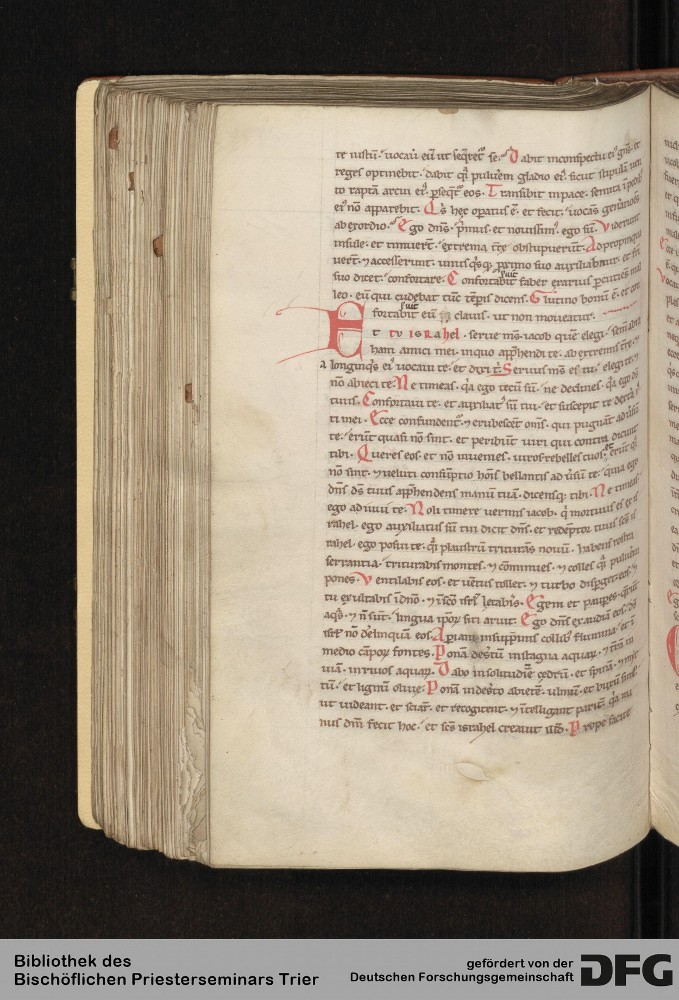 te iustū· uocau eū ut seqret᷑ se· Dabit inconspectu ei᷒ gn̄s· et
reges optinebit· dabit q̄i puluerem gladio ei᷒· sicut stipulā uen
to raptā arcui ei᷒· p̱seqt᷑ eos· Transibit inpace· semita ī pedib᷒
ei᷒ nō apparebit· Qs hęc opatus ē· et fecit· uocās genatiōes
ab exordio· Ego dn̄s· p̄mus· et nouissim᷒ ego sū· Viderunt
insule· et timuerт̄· extrema tr̄e obstupuerт̄· Appropinqua
uerт̄· ⁊ accesserunt· unusq̄sq; primo suo auxiliabitur· et fri
suo dicet· confortare· Confortabit faber erarius pcutiēs mal
leo· eū qui cudebat tūc tēpis dicens· Glutino bonū ē· et con
fortabit eū clauis· ut non moueatur·
Et tu israhel· serue ms̄· iacob quē elegi· sem̄ abra
ham amici mei· inquo app̄hendi te· ab extremis tr̄e· ⁊
a longinq̄s ei᷒ uocaui te· et dixi t̄· Seruus ms̄ es tu· elegi te· ⁊
nō abieci te· Ne timeas· q̄a ego tecū sū· ne declines· q̄a ego ds̄
tuus· Confortaui te· et auxiliat᷒ sū tui· et suscepit te dextā ius
ti mei· Ecce confundent᷑· ⁊ erubescent oms̄· qui pugnāt aduersū
te· erūt quasi nō sint· et peribunt uiri qui contra dicunt
tibi· Queres eos· et nō inuenies· uiros rebelles tuos· et erūt q̄i
nō sint· ⁊ ueluti consūptio hōis bellantis aduersū te· quia ego
dn̄s ds̄ tuus app̄hendens manū tuā· dicensq; tibi· Ne timeas·
ego adiuui te· Noli timere uermis iacob· q̄ mortuus es ex is
rahel· ego auxiliatus sū tui dicit dn̄s· et redēptor tuus scs̄ is
rahel· ego posui te· q̄i plaustrū triturās nouū· habens rostra
serrantia· triturabis montes· ⁊ cōminues· ⁊ colles q̄i puluerem
pones· Ventilabis eos· et uētus tollet· ⁊ turbo dispget eos· ⁊
tu exultabis īdno· ⁊ īsco isrl̄ letab̄is· Egeni et paupes· q̄runt
aq̄s· ⁊ n̄ sunt· lingua ipoꝝ siti aruit· Ego dn̄s exaudiā eos· ds̄
isrl̄ nō derelinquā eos· Apiam insupp̄mis collib᷒ flumina· et ī
medio cāpoꝝ fontes· Ponā desтū instagna aquaꝝ· ⁊ тrā in
uiā· inriuos aquaꝝ· Dabo insolitudinē cedrū· et spinā· ⁊ mir
tū· et lignū oliue· Ponā indesto abietē· ulmū· et buxū simul·
ut uideant· et sciaт̄· et recogitent· ⁊ īтelligant pariт̄· q̄a ma
nus dn̄i fecit hoc· et scs̄ israhel creauit illd̄· Prope facite
Bibliothek des
Bischöflichen Priesterseminars Trier
gefördert von der
Deutschen Forschungsgemeinschaft
DFG